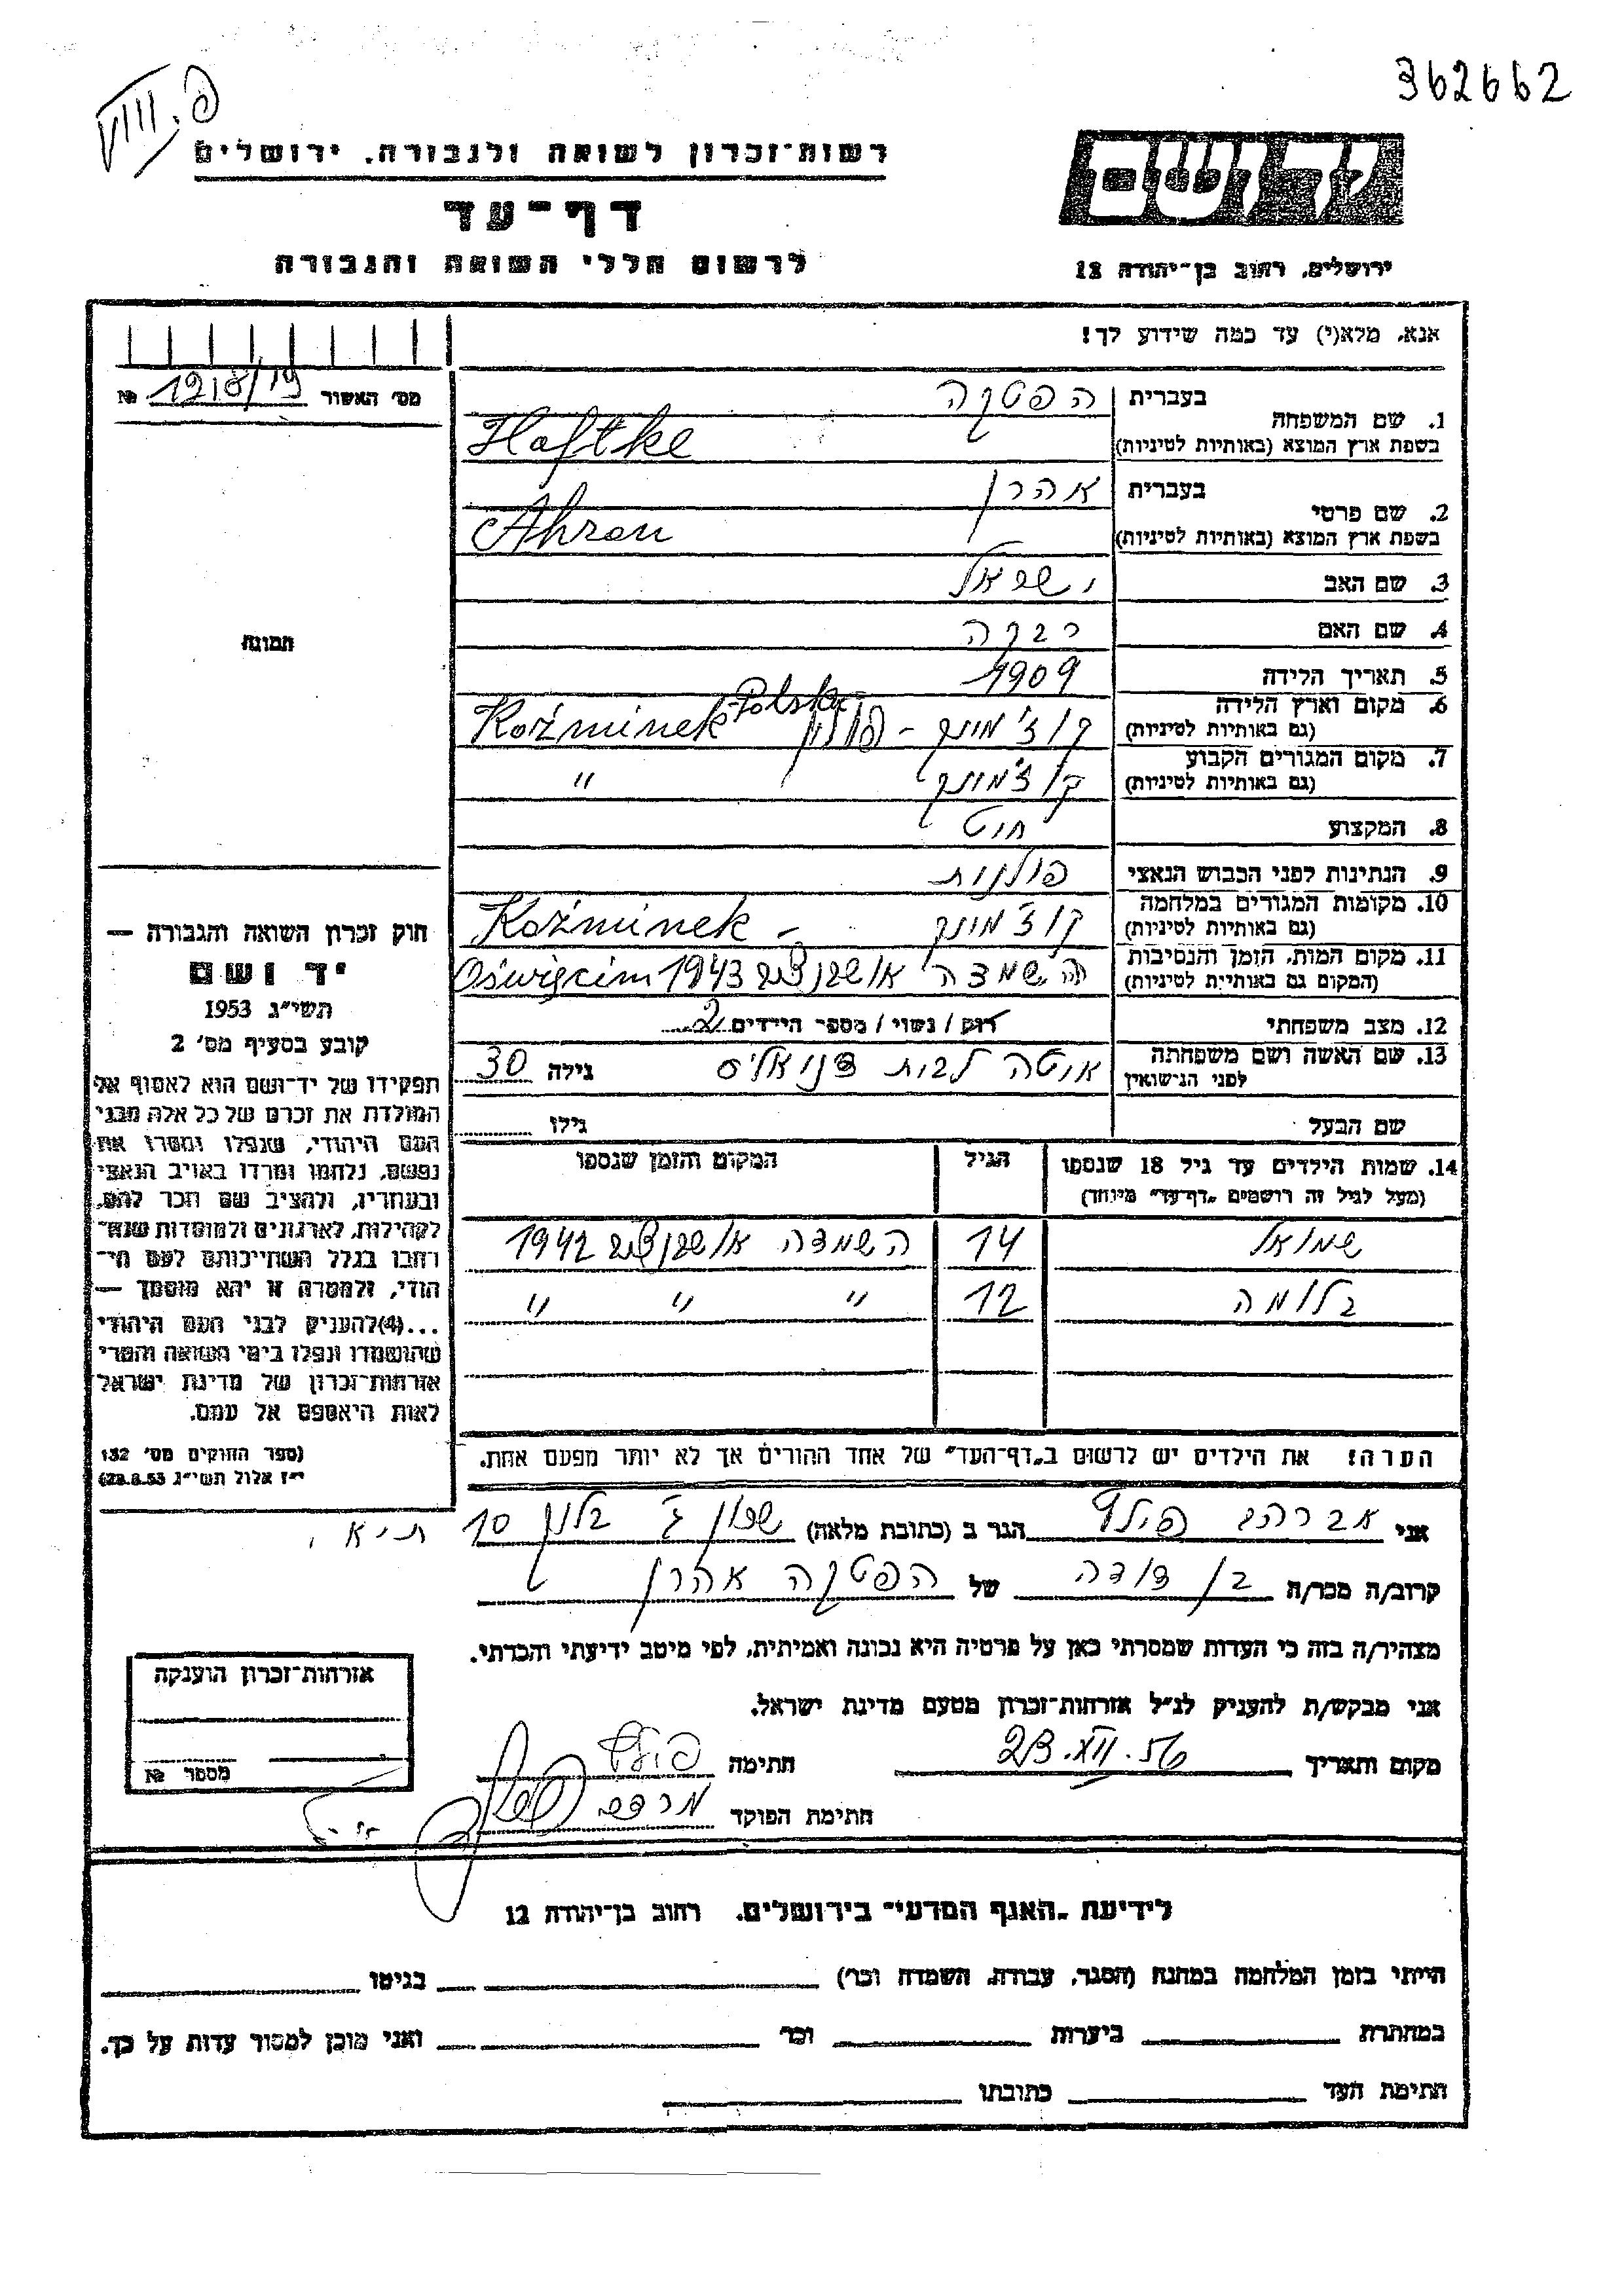 362662
VIII. פ
רשות-זכרון לשואה ולגבורה, ירושלים
דף-עד
לרשום חללי השואה והגבורה
יד ושם
ירושלים, רחוב בן-יהודה 12
אנא, מלא(י) עד כמה שידוע לך!
מס׳ האשור 1218/19 №
1. שם המשפחה בעברית הפטקה
בשפת ארץ המוצא (באותיות לטיניות) Haftke
2. שם פרטי בעברית אהרן
בשפת ארץ המוצא (באותיות לטיניות) Ahron
3. שם האב ישראל
4. שם האם רבקה
5. תאריך הלידה 1909
6. מקום וארץ הלידה (גם באותיות לטיניות) קוז׳מינק - פולין Koźminek Polska
7. מקום המגורים הקבוע (גם באותיות לטיניות) קוז׳מינק "
8. המקצוע חיט
9. הנתינות לפני הכבוש הנאצי פולנית
10. מקומות המגורים במלחמה (גם באותיות לטיניות) קוז׳מינק - Koźminek
11. מקום המות, הזמן והנסיבות (המקום גם באותיות לטיניות) השמדה אושבנצים 1943 Oświęcim
12. מצב משפחתי רווק / נשוי / מספר הילדים 2
13. שם האשה ושם משפחתה לפני הנישואין איטה לבית דניאליס גילה 30
שם הבעל גילו
14. שמות הילדים עד גיל 18 שנספו הגיל המקום והזמן שנספו
(מעל לגיל זה רושמים „דף-עד" מיוחד)
שמואל 14 השמדה אושבנצים 1942
בלומה 12 " " "
הערה! את הילדים יש לרשום ב„דף-העד" של אחד ההורים אך לא יותר מפעם אחת.
תמונה
חוק זכרון השואה והגבורה —
יד ושם
תשי״ג 1953
קובע בסעיף מס׳ 2
תפקידו של יד-ושם הוא לאסוף אל
המולדת את זכרם של כל אלה מבני
העם היהודי, שנפלו ומסרו את
נפשם, נלחמו ומרדו באויב הנאצי
ובעוזריו, ולהציב שם וזכר להם,
לקהילות, לארגונים ולמוסדות שנח־
רבו בגלל השתייכותם לעם הי־
הודי, ולמטרה זו יהא מוסמך —
...(4) להעניק לבני העם היהודי
שהושמדו ונפלו בימי השואה והמרי
אזרחות-זכרון של מדינת ישראל
לאות היאספם אל עמם.
(ספר החוקים מס׳ 132
י״ז אלול תשי״ג 28.8.53)
אני אברהם פולד הגר ב (כתובת מלאה) שכון ג׳ בלוק 10 ת"א.
קרוב/ה מכר/ה בן דודה של הפטקה אהרן
מצהיר/ה בזה כי העדות שמסרתי כאן על פרטיה היא נכונה ואמיתית, לפי מיטב ידיעתי והכרתי.
אני מבקש/ת להעניק לנ״ל אזרחות-זכרון מטעם מדינת ישראל.
מקום ותאריך 23.XII.56 חתימה פולד
חתימת הפוקד
אזרחות-זכרון הוענקה
מספר №
לידיעת „האגף המדעי" בירושלים, רחוב בן-יהודה 12
הייתי בזמן המלחמה במחנה (הסגר, עבודה, השמדה וכו׳) בגיטו
במחתרת ביערות וכו׳ ואני מוכן למסור עדות על כך.
חתימת העד כתובתו